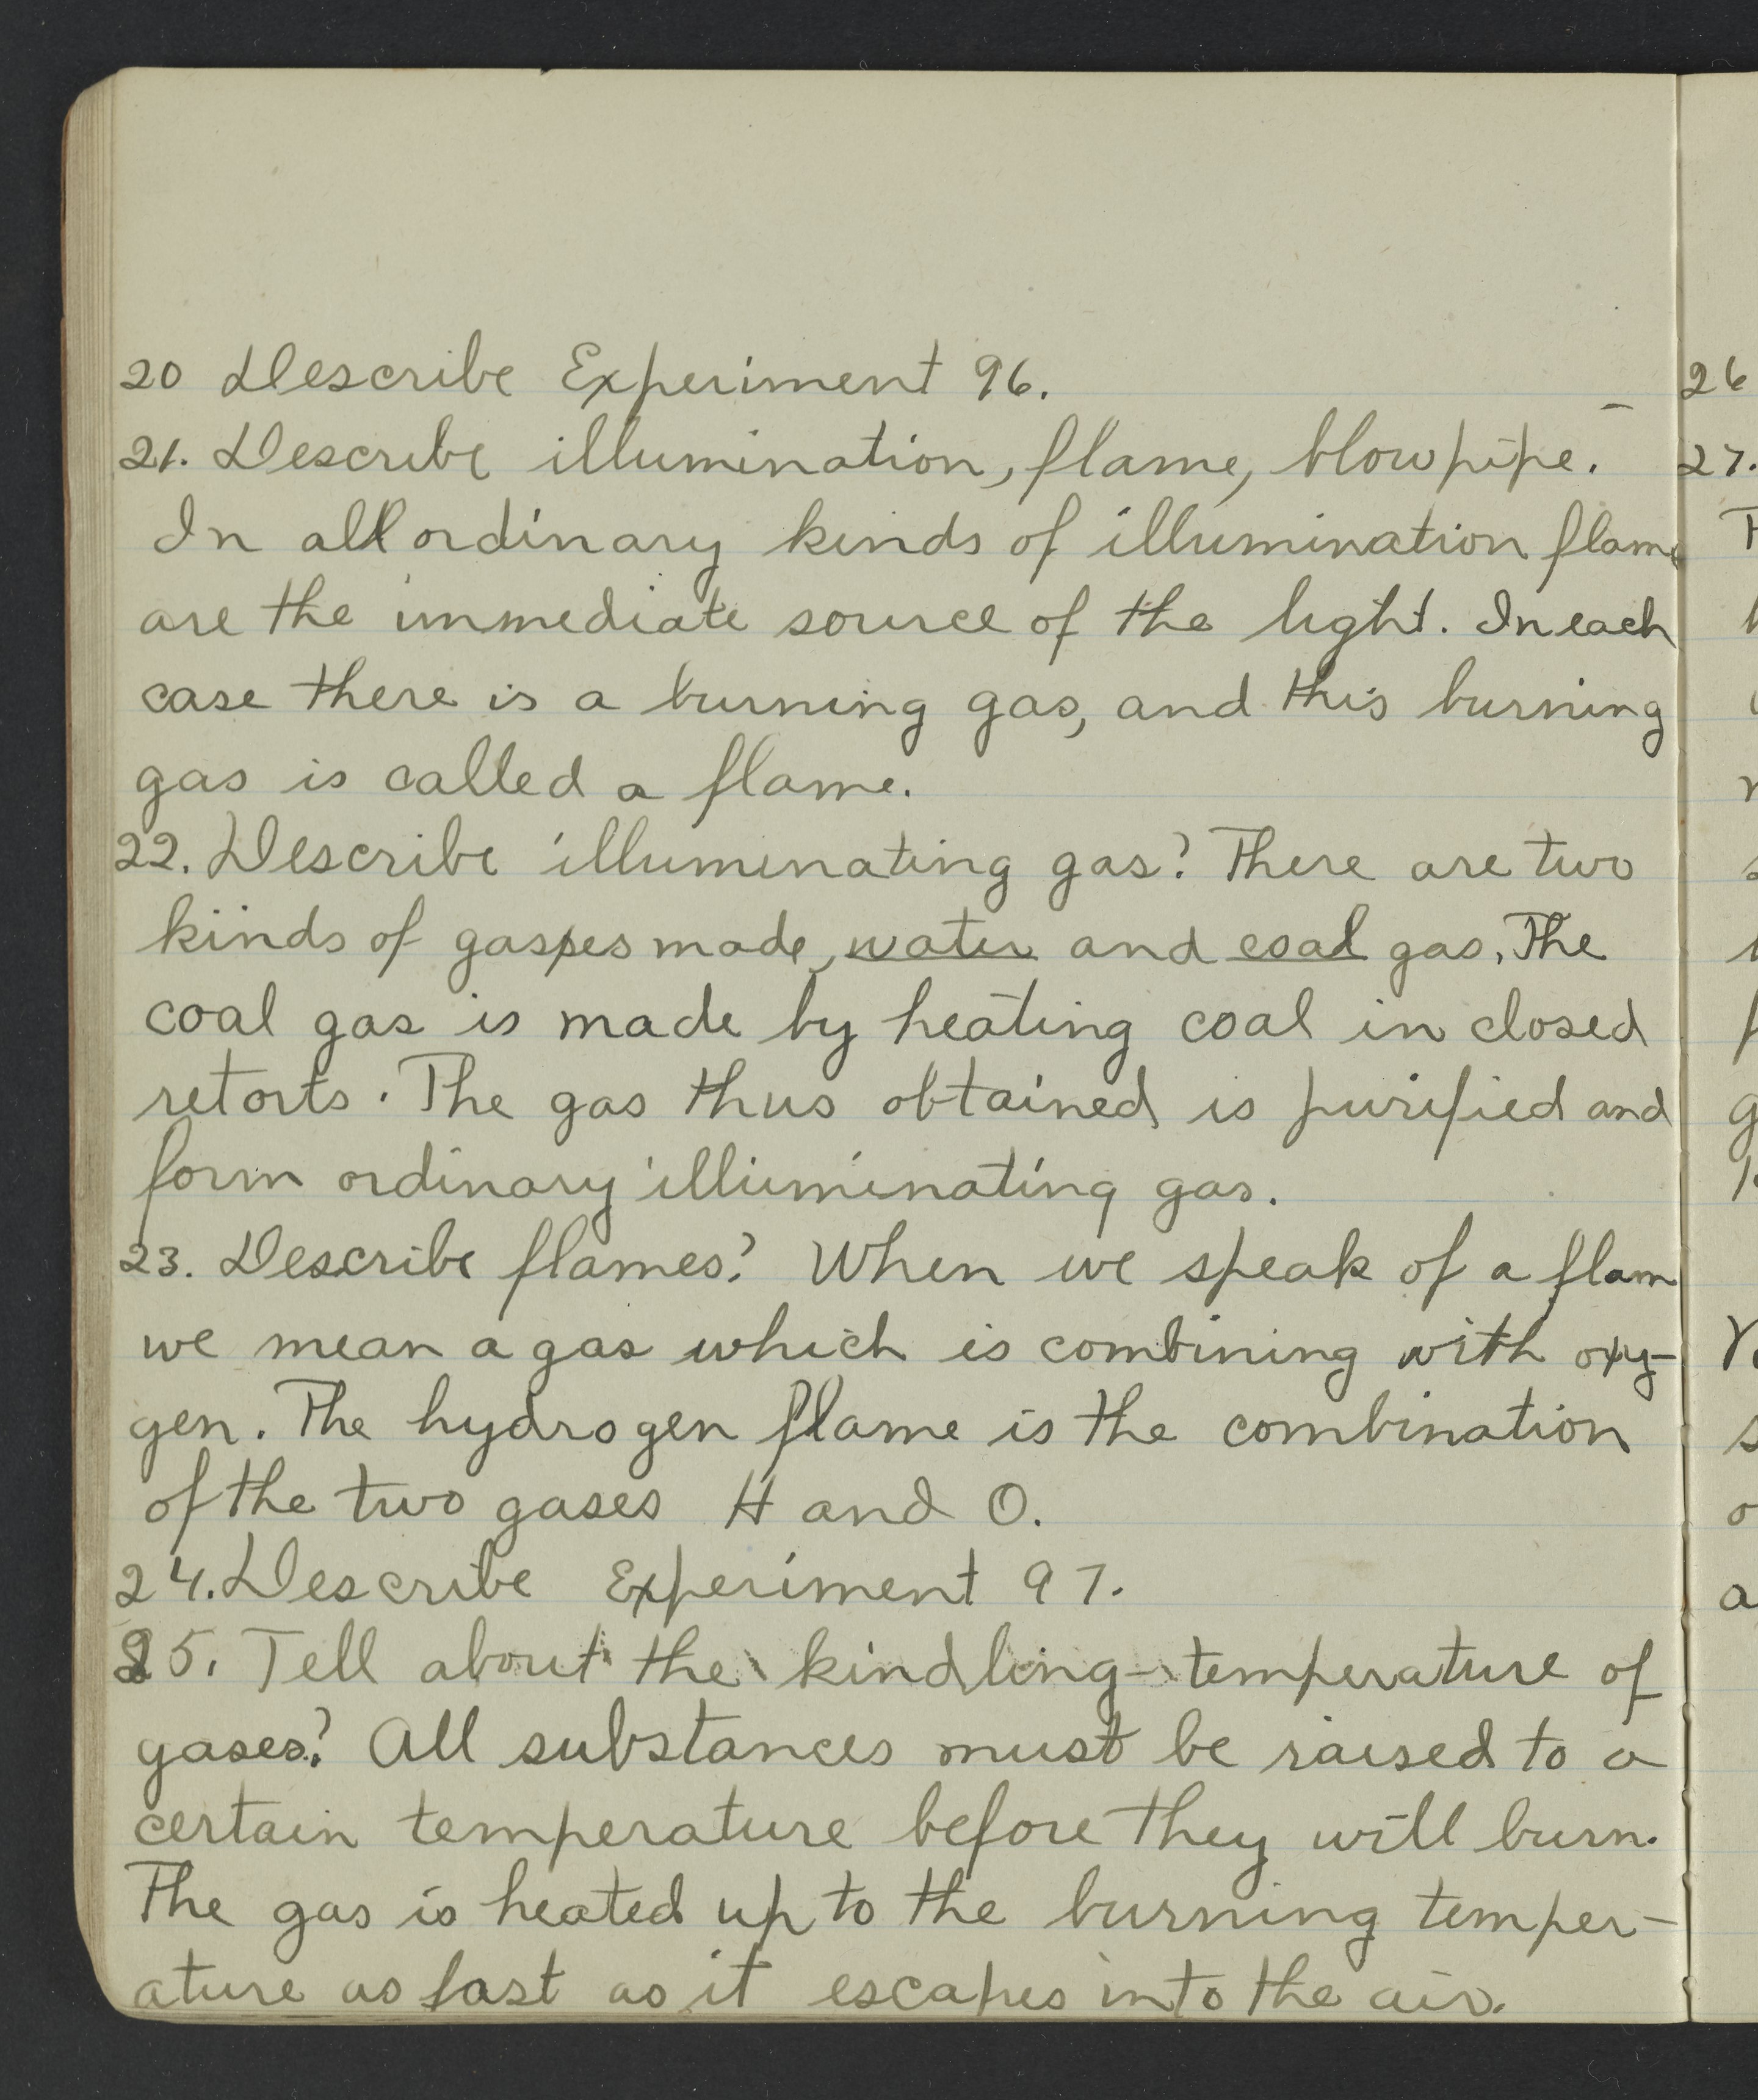 20 Describe Experiment 96.
21. Describe illumination, flame, blowpipe.
In all ordinary kinds of illumination flame
are the immediate source of the light. In each
case there is a burning gas, and this burning
gas is called a flame.
22. Describe illuminating gas? There are two
kinds of gasses made, water and coal gas. The
coal gas is made by heating coal in closed
retorts. The gas thus obtained is purified and
form ordinary illiuminating gas.
23. Describe flames? When we speak of a flam
we mean a gas which is combining with oxy-
gen. The hydrogen flame is the combination
of the two gases H and O.
24. Describe Experiment 97.
25. Tell about the kindling-temperature of
gases? All substances must be raised to a
certain temperature before they will burn.
The gas is heated up to the burning temper-
ature as fast as it escapes into the air.
26
27.